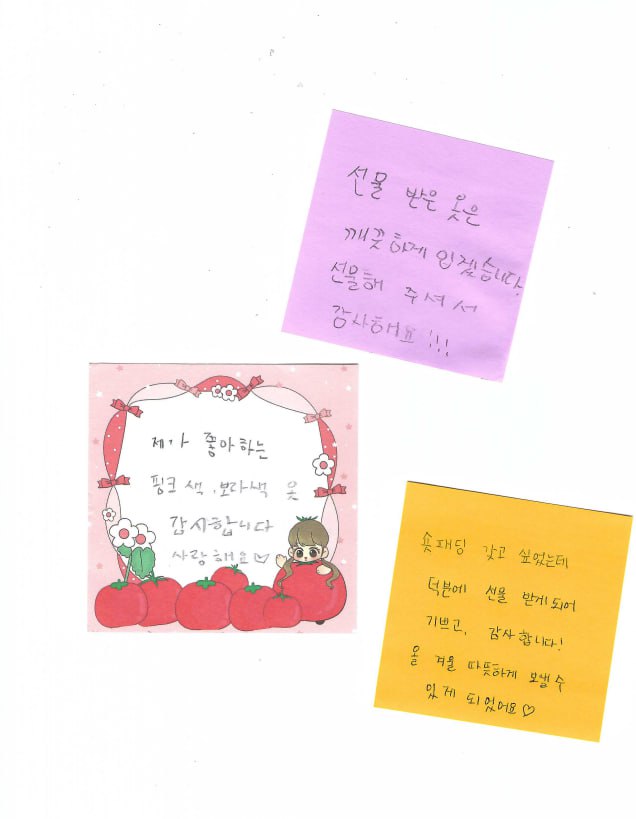 선물 받은 옷은
깨끗하게 입겠습니다.
선물해 주셔서
감사해요!!!
제가 좋아하는
핑크색, 보라색 옷
감사합니다
사랑해요♡
숏패딩 갖고 싶었는데
덕분에 선물 받게 되어
기쁘고, 감사합니다!
올 겨울 따뜻하게 보낼 수
있게 되었어요♡